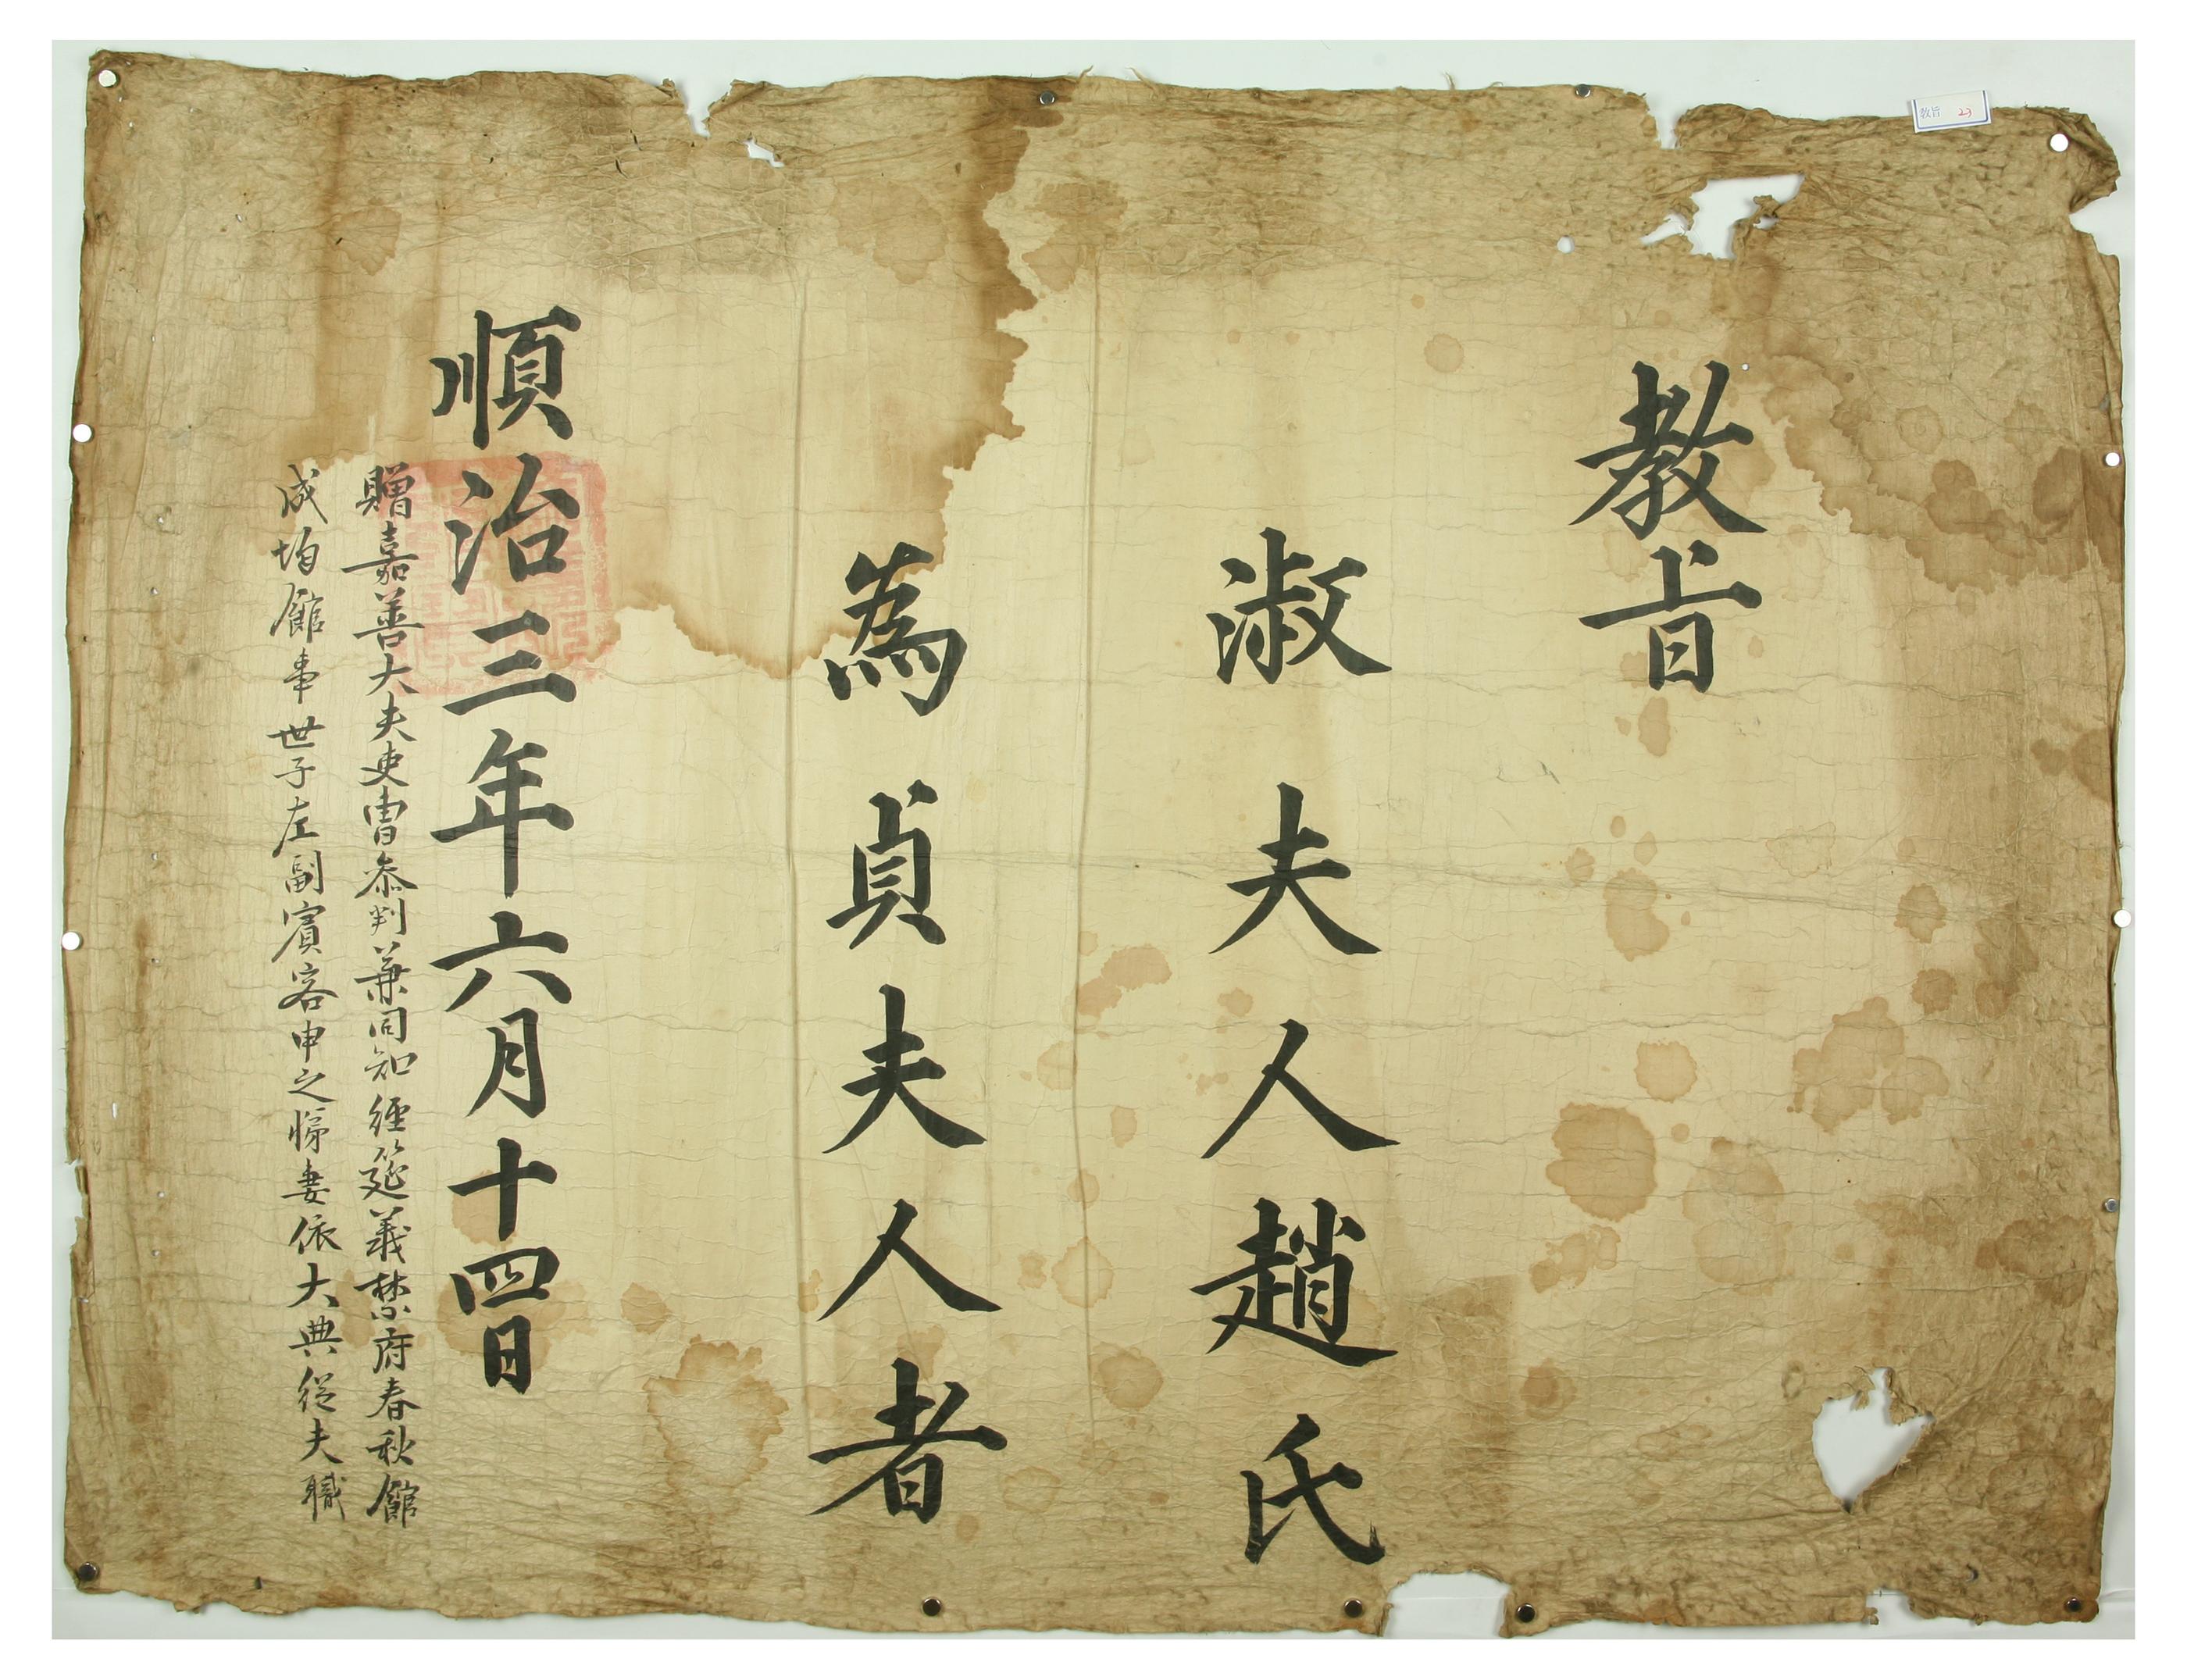 教旨
淑夫人趙氏
為貞夫人者
順治三年六月十四日
贈嘉善大夫吏曹叅判兼同知經筵義禁府春秋館
成均館事世子左副賓客申之悌妻依大典從夫職
教旨 23